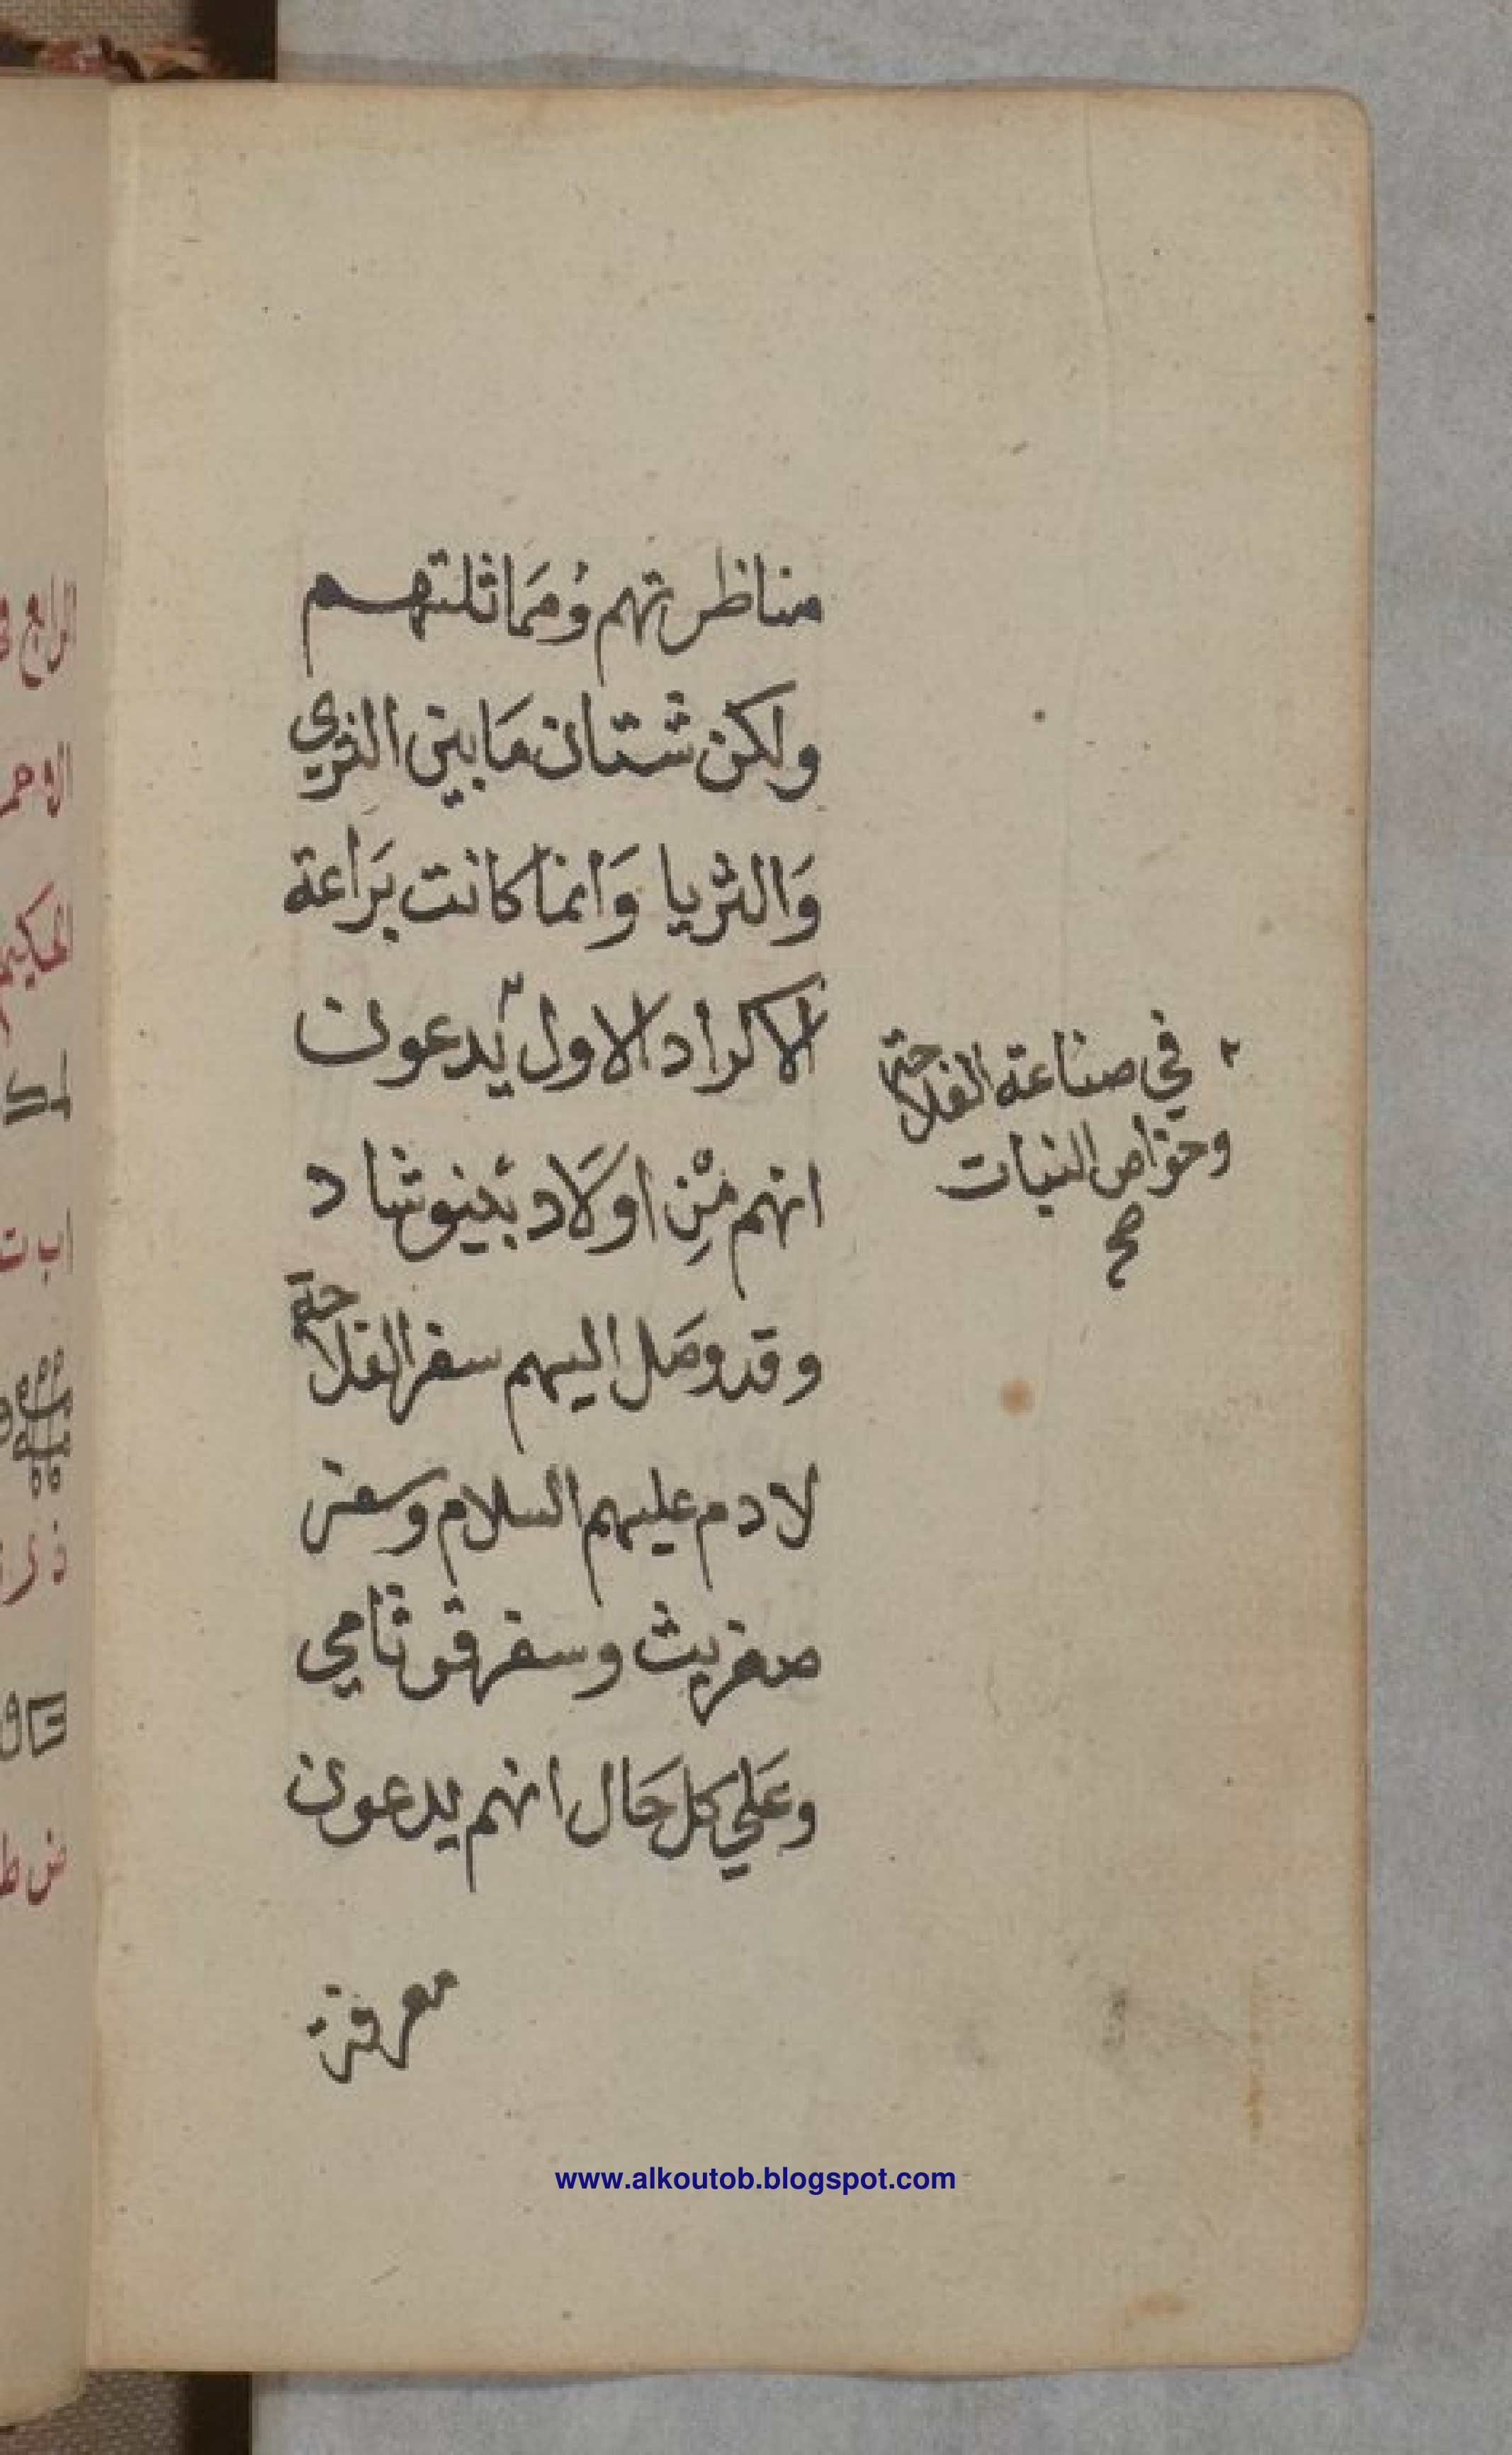 مناظرتهم وُمَماثلتهم
ولكن شتان مَا بين الثري
وَالثريا وَانما كانت بَراعة
الاكراد الاول ٢ يدعون
انهم مْنِ اولَاد بينوشاد
وقد وصَل اليهم سفر الفلاحة
لادم عليهم السلام وسفر
صغريث وسفر قوثامي
وعَلي كل حَال انهم يدعون
معرفة
٢ في صناعة الفلاحة
وخواص النبات
صح
www.alkoutob.blogspot.com
الرابع
الاحمر
اب ت